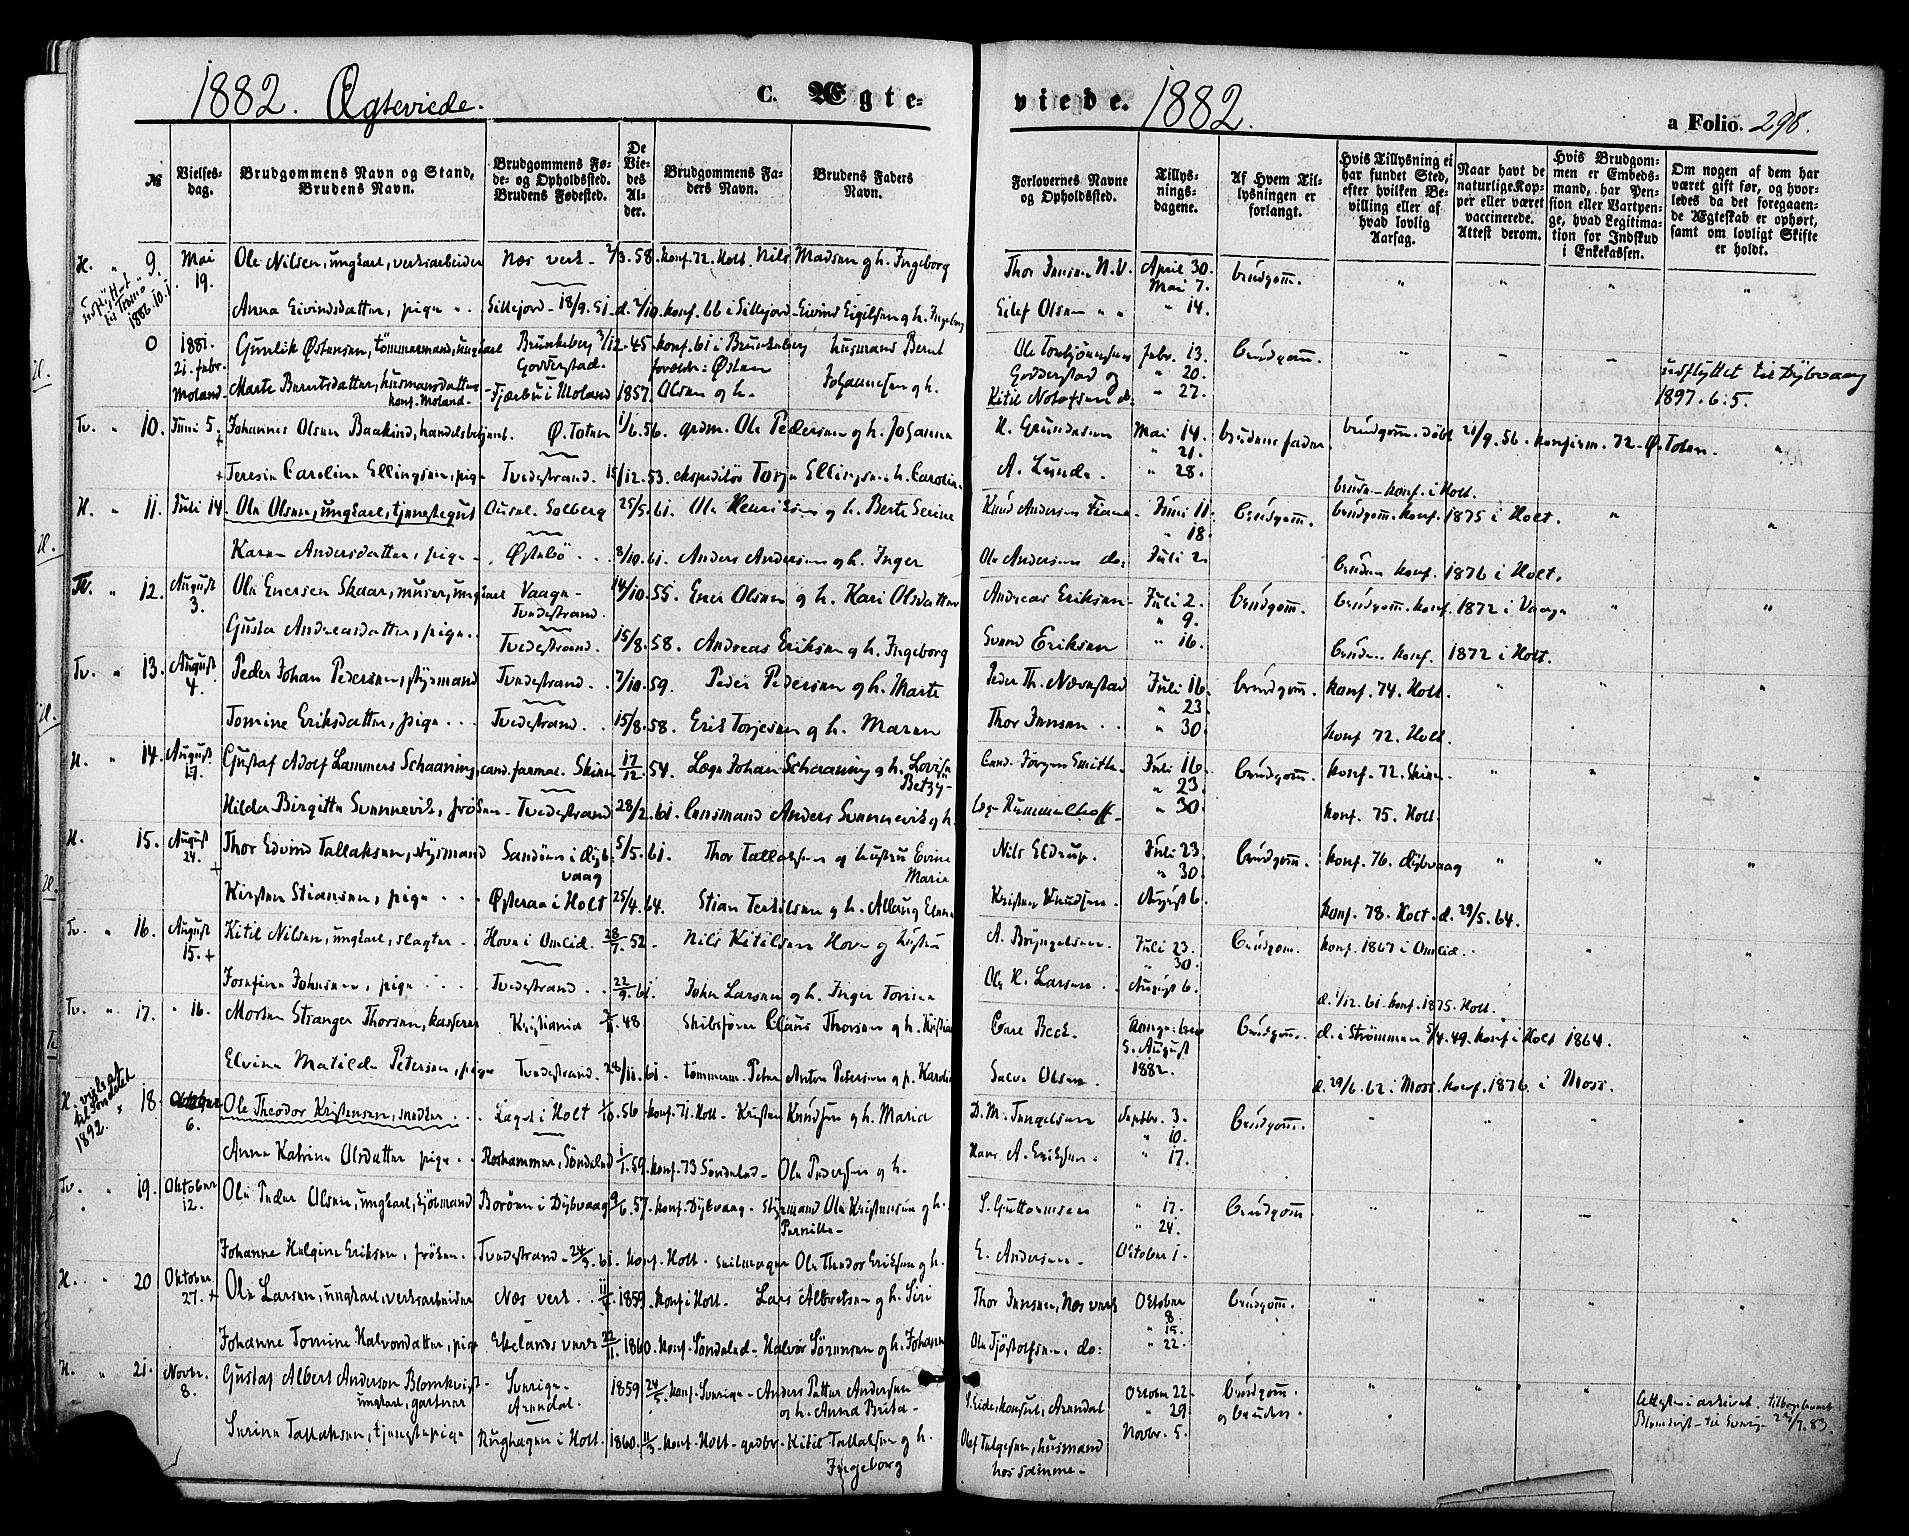 1882. Ægteviede.
C. Ægte-
viede. 1882.
a Folio. 298.
№
Vielses-
dag.
Brudgommens Navn og Stand,
Brudens Navn.
Brudgommens Fø-
de- og Opholdssted.
Brudens Fødested.
De
Vie-
des
Al-
der.
Brudgommens Fa-
ders Navn.
Brudens Faders
Navn.
Forlovernes Navne
og Opholdssted.
Tillys-
nings-
dagene.
Af Hvem Til-
lysningen er
forlangt.
Hvis Tillysning ei
har fundet Sted,
efter hvilken Be-
villing eller af
hvad lovlig
Aarsag.
Naar havt de
naturlige Kop-
per eller været
vaccinerede.
Attest derom.
Hvis Brudgom-
men er Embeds-
mand, har Pen-
sion eller Vartpen-
ge, hvad Legitima-
tion for Indskud
i Enkekassen.
Om nogen af dem har
været gift før, og hvor-
ledes da det foregaaen-
de Ægteskab er ophørt,
samt om lovligt Skifte
er holdt.
H. " 9. Mai 19. Ole Nilsen, ungkarl, verksarbeider Næs verk - 2/3.58. konf. 72. Holt. Nils Madsen og h. Ingeborg Thor Jensen N.V. April 30. Mai 7. brudgom̅. " " " "
Anna Eivindsdatter, pige Sillejord - 18/9.51. d. 2/10. konf. 66 i Sillejord - Eivind Eigilsen og h. Ingeborg Eilef Olsen " " " 14.
0 1881. 21. febr. Moland Gunlik Østensen, tømmermand, ungkarl Brunkeberg Godderstad. 3/12.45. konf. 61 i Brunkeberg forældr: Østen Olsen og h. husmand Bernt Johannesen og h. febr. 13. " 20. " 27. brudgom̅.
Marte Berntsdatter, husmandsdatter konf. Moland - Fjærbu i Moland 1857. Godderstad og Kitil Notofsen do: udflyttet til Dybvaag 1897. 6:5.
Tv. " 10. Juni 5 + Johannes Olsen Baakind, handelsbetjent. Ø. Toten 1/6.56. grdm. Ole Pedersen og h. Johanne H. Gundersen Mai 14. " 21. " 28. brudens fader brudgom̅. døbt 21/9.56. konfirm. 72 - Ø. Toten. "
+ Teresia Carolina Ellingsen, pige Tvedestrand. 15/12.53. ekspeditør Torje Ellingsen h. Caroline. A. Lunde. bruden konf. i Holt.
H. " 11. Juli 14. Ole Olsen, ungkarl, tjenestegut Solberg 25/5.61. Ole Henriksen og h. Berte Serine Knud Andersen Juni 11. " 18. Juli 2. brudgom̅. brudgom̅. konf. 1875 i Holt. " "
Karen Andersdatter, pige - Østebö 8/10.61. Anders Andersen og h. Inger Ole Andersen do: bruden konf. 1876 i Holt.
Tv. " 12. August 3. Ole Enersen Skaar, murer, ungkarl Vaage - Tvedestrand. 14/10.55. Ener Olsen og h. Kari Olsdatter Andreas Eriksen - Juli 2. " 9. " 16. brudgom̅. brudgom̅. konf. 1872 i Vaage " "
Gusta Andreasdatter, pige. Tvedestrand. 15/8.58. Andreas Eriksen og h. Ingeborg Svend Eriksen bruden konf. 1872 i Holt.
Tv. " 13. August 4. Peder Johan Pedersen, styrmand Tvedestrand. 7/10.59. Peder Pedersen og h. Marte Peder Th. Nævestad Juli 16. " 23. " 30. brudgom̅. konf. 74. Holt. " " "
Tomine Eriksdatter, pige Tvedestrand. 15/8.58. Erik Torjesen og h. Maren Thor Jensen konf 72. Holt.
H. " 14. August 17. Gustaf Adolf Lammers Schaaning, cand. farmac. Skien 17/12.54. Læge Johan Schaaning og h. Lovise Betzy - Cand. Jørgen Smith. Juli 16. " 23. " 30 brudgom̅. konf. 72. Skien " " "
Hilda Birgitte Svennevik, frøken - Tvedestrand 28/2.61. Lensmand Anders Svennevik og h. Læge Rummelhoff - konf. 75. Holt.
H. 15. August 24. + Thor Edvind Tallaksen, styrmand Sandøen i Dybvaag 5/5.61. Thor Tallaksen og hustru Evine Marie Nils Eldrup. Juli 23. " 30. August 6. brudgom̅. konf. 76. Dybvaag " " "
Kirsten Stiansen, pige Østeraa i Holt 25/4.64. Stian Terkilsen og h. Allaug Elene Kristen Knudsen konf. 78. Holt. d. 29/5.64.
Tv. " 16. August 15. + Kitil Nilsen, ungkarl, slagter Hove i Omlid. 28/7.52. Nils Kitilsen Hove og hustru A. Bryngelsen. Juli 23. " 30. August 6. brudgom. konf. 1867 i Omlid. " "
Josefine Johnsen, pige Tvedestrand 22/9.61. John Larsen og h. Inger Tomine Ole H. Larsen d. 1/12.61. konf. 1875. Holt.
Tv. " 17. " 16. Morten Stranger Thorsen, kasserer Kristiania .48. Skibsfører Claus Thorsen og h. Kristiane Carl Beck. Konge. brev 5. August 1882. brudgom̅. d. i Strømmen 5/4.49. konf i Holt 1864. "
Elvine Matilde Petersen, pige Tvedestrand. 28/11.61. tømmerm. Peter Anton Petersen og h. Karoline Salve Olsen. d. 29/6.62 i Moss. konf. 1876 i Moss.
H. " 18. Oktober 6. Ole Theodor Kristensen, snedker Laget i Holt 1/10.56 konf. 71. Holt - Kristen Knudsen og h. Maria D. M. Tengelsen Septbr. 3. " 10. " 17. brudgom̅. " " " "
1892. Anne Katrine Olsdatter pige Roshammer, Søndeled 1/1.59. konf. 73 Søndeled - Ole Pedersen og h. Hans A. Eriksen.
Tv. " 19. Oktober 12. Ole Peder Olsen, ungkarl, sjømand Borøen i Dybvaag 9/6.57. konf. Dybvaag - Styrmand Ole Kristensen og h. Pernille - S. Guttormsen " 17. " 24. Oktober 1. brudgom̅ " " - "
Johanne Helgine Eriksen, frøken. Tvedestrand - 24/3.61. konf. Holt. seilmager Ole Theodor Eriksen og h. E. Andersen -
H. " 20 Oktober 27. + Ole Larsen, ungkarl, verksarbeider Næs verk 1859. konf i Holt. Lars Albretsen og h. Siri Thor Jensen, Næs verk Oktober 8. " 15. " 22. brudgom̅. " " " "
Johanne Tomine Halvorsdatter, pige Egelands verk 22/11. 1860. konf. Søndeled - Halvor Sørensen og h. Johanne Ole Tjøstolfsen, do:
H. " 21. Novbr. 8. Gustaf Albert Anderson Blomkvist - ungkarl, gartner Sverige - Arendal. 1859 24/5. konf. Sverige - Anders Petter Andersen og h. Anna Brita - S. Eide, konsul, Arendal Oktober 22. " 29. Novbr. 5. brudgom̅. og bruden. " " " Attester i arkivet. tilbageleveret Blomkvist - til Sverig 22/7.83.
Serine Tallaksen, tjenestepige Rughagen i Holt. 1860. 11/3. konf. Holt - grdbr. Kitil Tallaksen og h. Ingeborg Olef Telgesen, husmand hos samme -